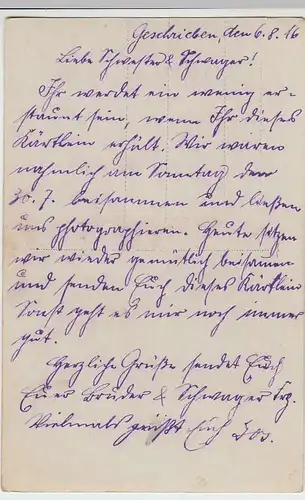 Geschrieben, den 6.8.16
Liebe Schwester & Schwager!
Ihr werdet ein wenig er-
staunt sein, wenn Ihr dieses
Kärtlein erhält. Wir waren
nähmlich am Sonntag den
30.7. beisammen und ließen
uns photographieren. Heute sitzen
wir wieder gemütlich beisamen
und senden Euch dieses Kärtlein
Sonst geht es mir noch immer
gut.
Herzliche Grüße sendet Euch
Euer Bruder & Schwager Frz.
Vielmals grüßt Euch Jos.